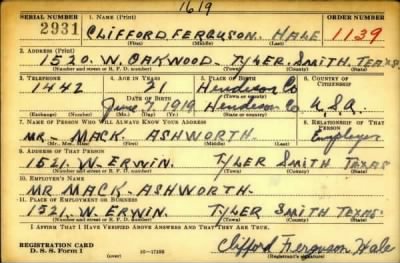 1619
SERIAL NUMBER 1. NAME (Print) ORDER NUMBER
2931 CLIFFORD. FERGUSON. HALE 1139
(First) (Middle) (Last)
2. ADDRESS (Print)
1520. W. OAKWOOD - TYLER. SMITH. TEXAS
(Number and street or R. F. D. number) (Town) (County) (State)
3. TELEPHONE 4. AGE IN YEARS 5. PLACE OF BIRTH 6. COUNTRY OF CITIZENSHIP
1442 21 Henderson Co
DATE OF BIRTH
June 7, 1919 Henderson Co U.S.A.
(Exchange) (Number) (Mo.) (Day) (Yr.) (State or country)
7. NAME OF PERSON WHO WILL ALWAYS KNOW YOUR ADDRESS 8. RELATIONSHIP OF THAT PERSON
MR - MACK. ASHWORTH. Employer
(Mr., Mrs., Miss) (First) (Middle) (Last)
9. ADDRESS OF THAT PERSON
1521. W - ERWIN. TYLER SMITH TEXAS
(Number and street or R. F. D. number) (Town) (County) (State)
10. EMPLOYER'S NAME
MR MACK - ASHWORTH -
11. PLACE OF EMPLOYMENT OR BUSINESS
1521. W. ERWIN. TYLER SMITH TEXAS.
(Number and street or R. F. D. number) (Town) (County) (State)
I AFFIRM THAT I HAVE VERIFIED ABOVE ANSWERS AND THAT THEY ARE TRUE.
REGISTRATION CARD
D. S. S. Form 1 Clifford Ferguson Hale
(Registrant's signature)